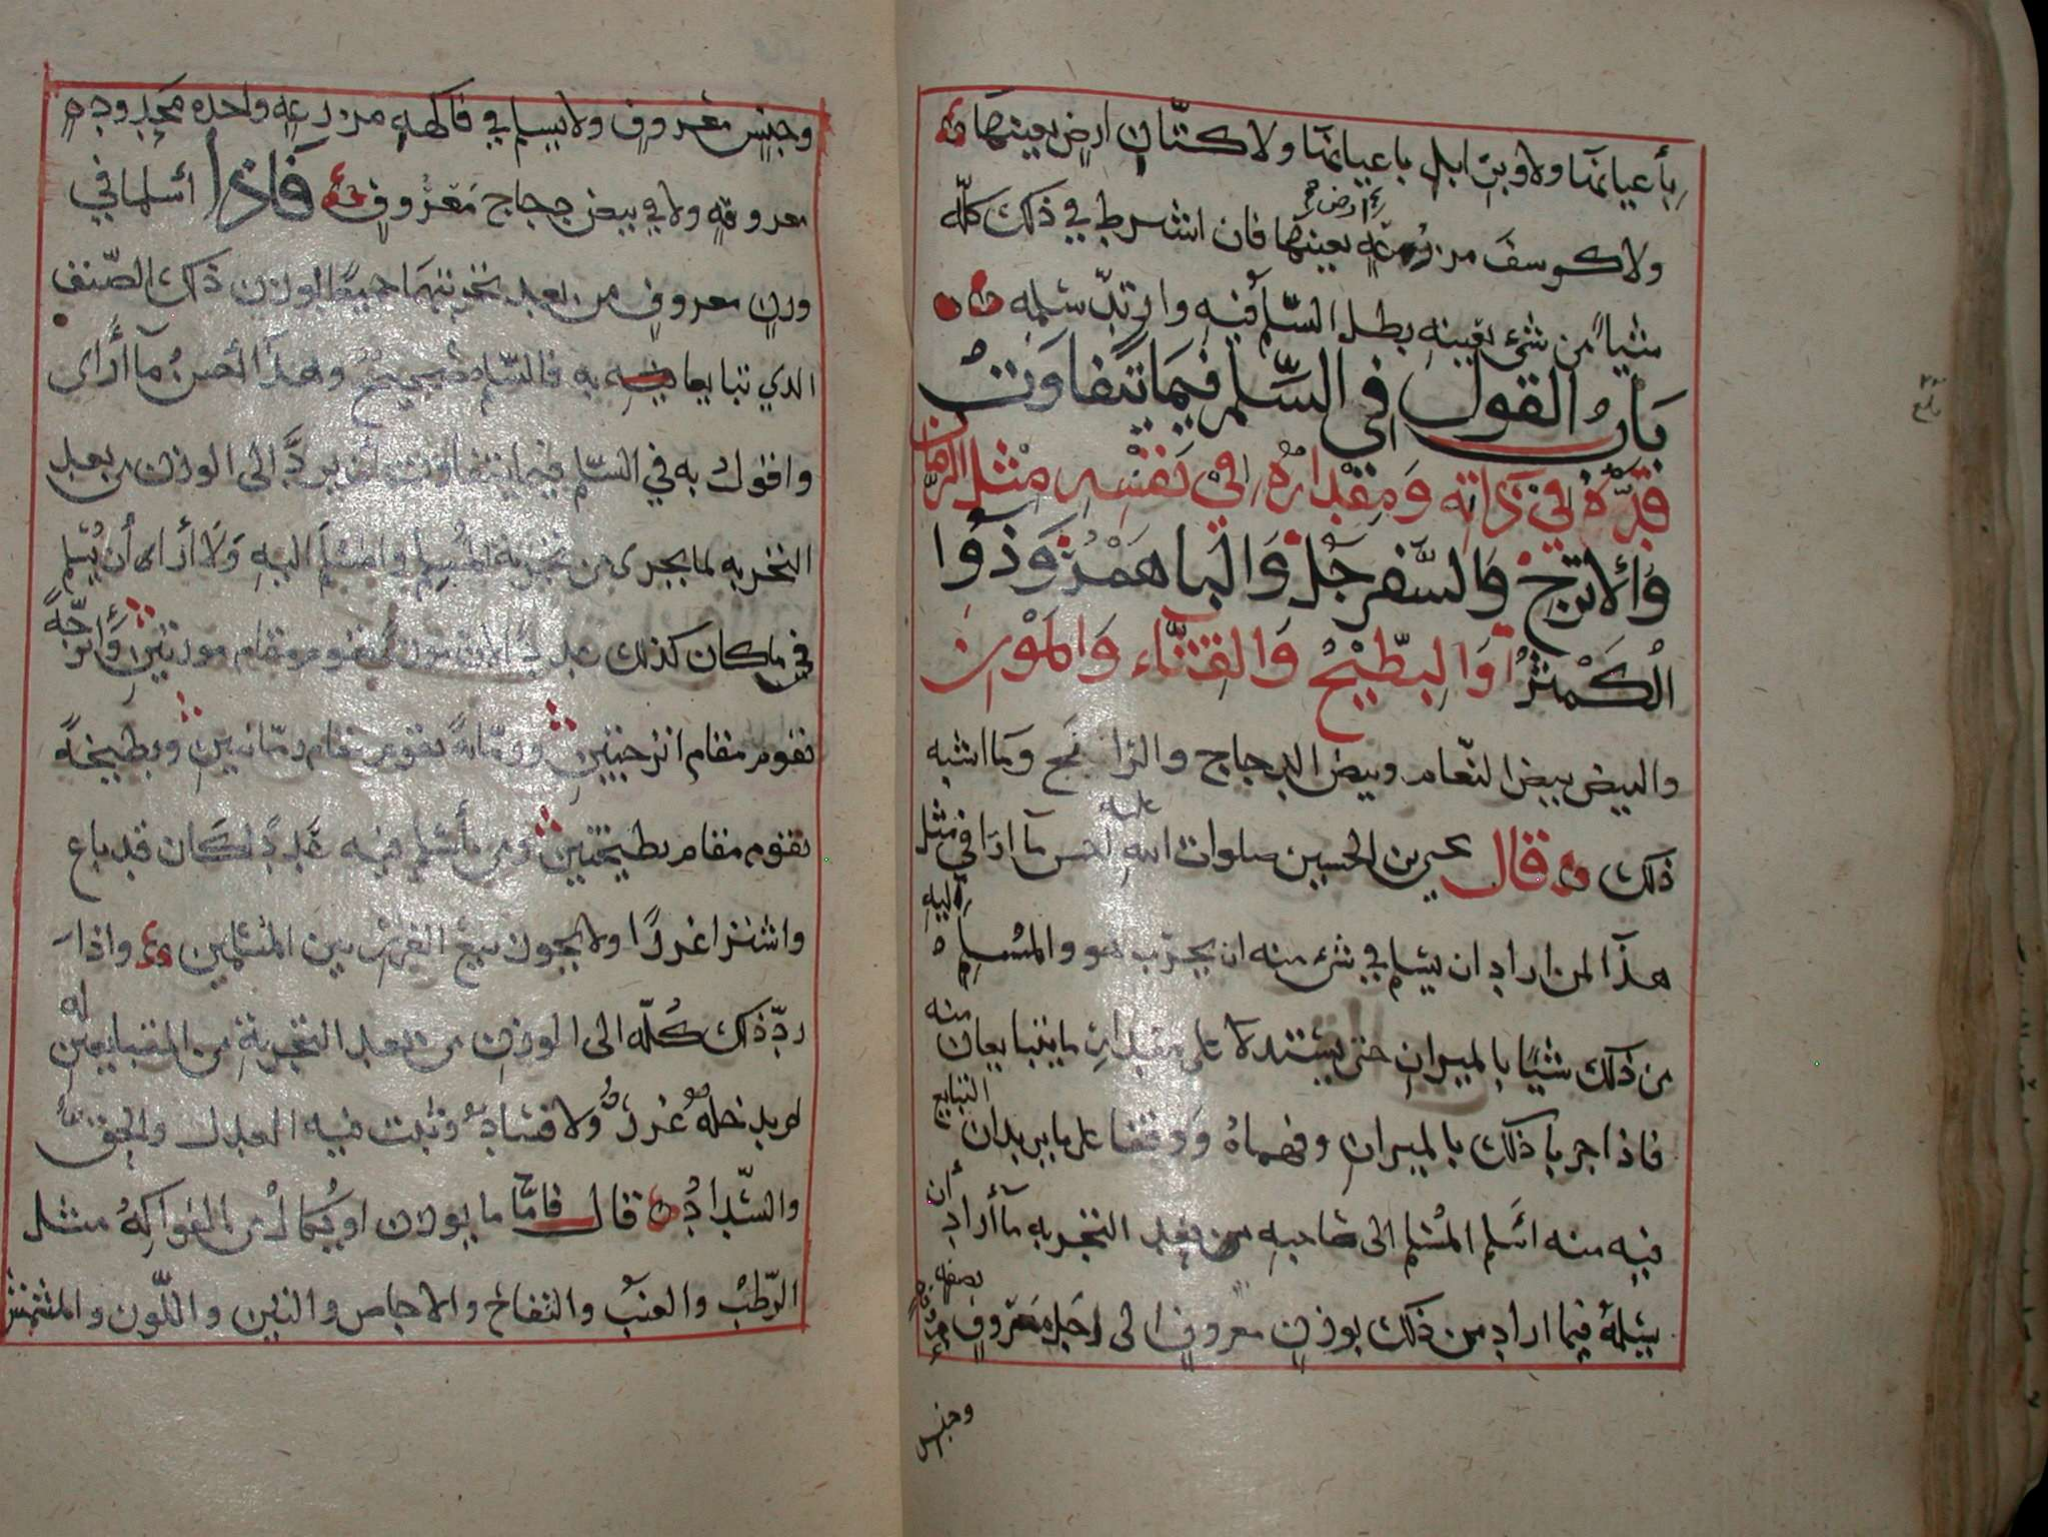 بأعيانها ولا وبر ابل باعيانها ولا كتّان ارض بعينها
ولا كرسف من مزرعة بعينها فان اشترط في ذلك كلّه
ارض
شيأً من شئ بعينه بطل السّلم فيه وارتدّ سلمه
بَابُ القول في السّلم فيمَا تتفاوَتْ
قدرُهُ في ذاته وَمقدارُه في نفسه مثل الرّمان
وَالأترج وَالسّفرجَل وَالباهمرُوَذوَا
الكُمثرَا وَالبطّيخ وَالقثّاء وَالموْن
والبيض بيض النّعام وبيض الدجاج والرانج وَما اشبه
ذلك قال يحيى بن الحسين صلوات الله عليه احسن مآ ارَا في مثل
هذا لمن اراد ان يسلم في شئ منه ان يجرّب هو والمسلم
اليه
من ذلك شيًا بالميزان حتى يستدلا على مقدار ما يتبايعان
منه
فاذا جربا ذلك بالميزان وفهماهُ وَوقفا على ما يريدان
التبايع
فيه منه اسَلم المسْلم الى صَاحبه من بعد التجربه مآ أراد
أن
يسلم فيما اراد من ذلك بوزن معروف الى اجَل معرَوف
بصفه معروفه
وجنس
وجنس معروف ولا يسلم في فاكهة مزرعة واحده محدوده
معروفة ولا في بيض دجاج مَعرُوف فَاذا أسلما في
وزن معروف من بعد تجربتهمَا جميعًا لوزن ذلك الصّنف
الذي تبايعا فيه به فالسّلم صَحيحٌ وهذا احسنُ مآ أرَاى
واقول به في السّلم فيما يتفاوت ان يردَّ الى الوزن من بعد
التجربه لما يجرى من تجربة المُسلم والمسْلَم اليه وَلا أرَاى أن يُسْلم
في ما كان كذلك عددًا لان موزةً تقوم مقام موزتين وَأترجّةً
تقوم مقام اترجتين ورمّانةً تقوم مقام رمّانتين وبطيخةً
تقوم مقام بطيختين ومن أسْلم فيه عَددًا لكان قد باع
واشترا غررًا ولا يجوز بيع الغرر بين المسْلمين واذا
ردّ ذلك كُلّه الى الوزن من بعد التجربة من المتبايعين
له
لم يدخلهُ غررٌ ولا فسَادٌ وثبت فيه العدل والحق
والسّدادُ قال فامّا ما يوزن او يُكالُ من الفواكه مثل
الرّطبْ والعنبْ والتّفاح والاجاص والتين واللّوز والمشمش